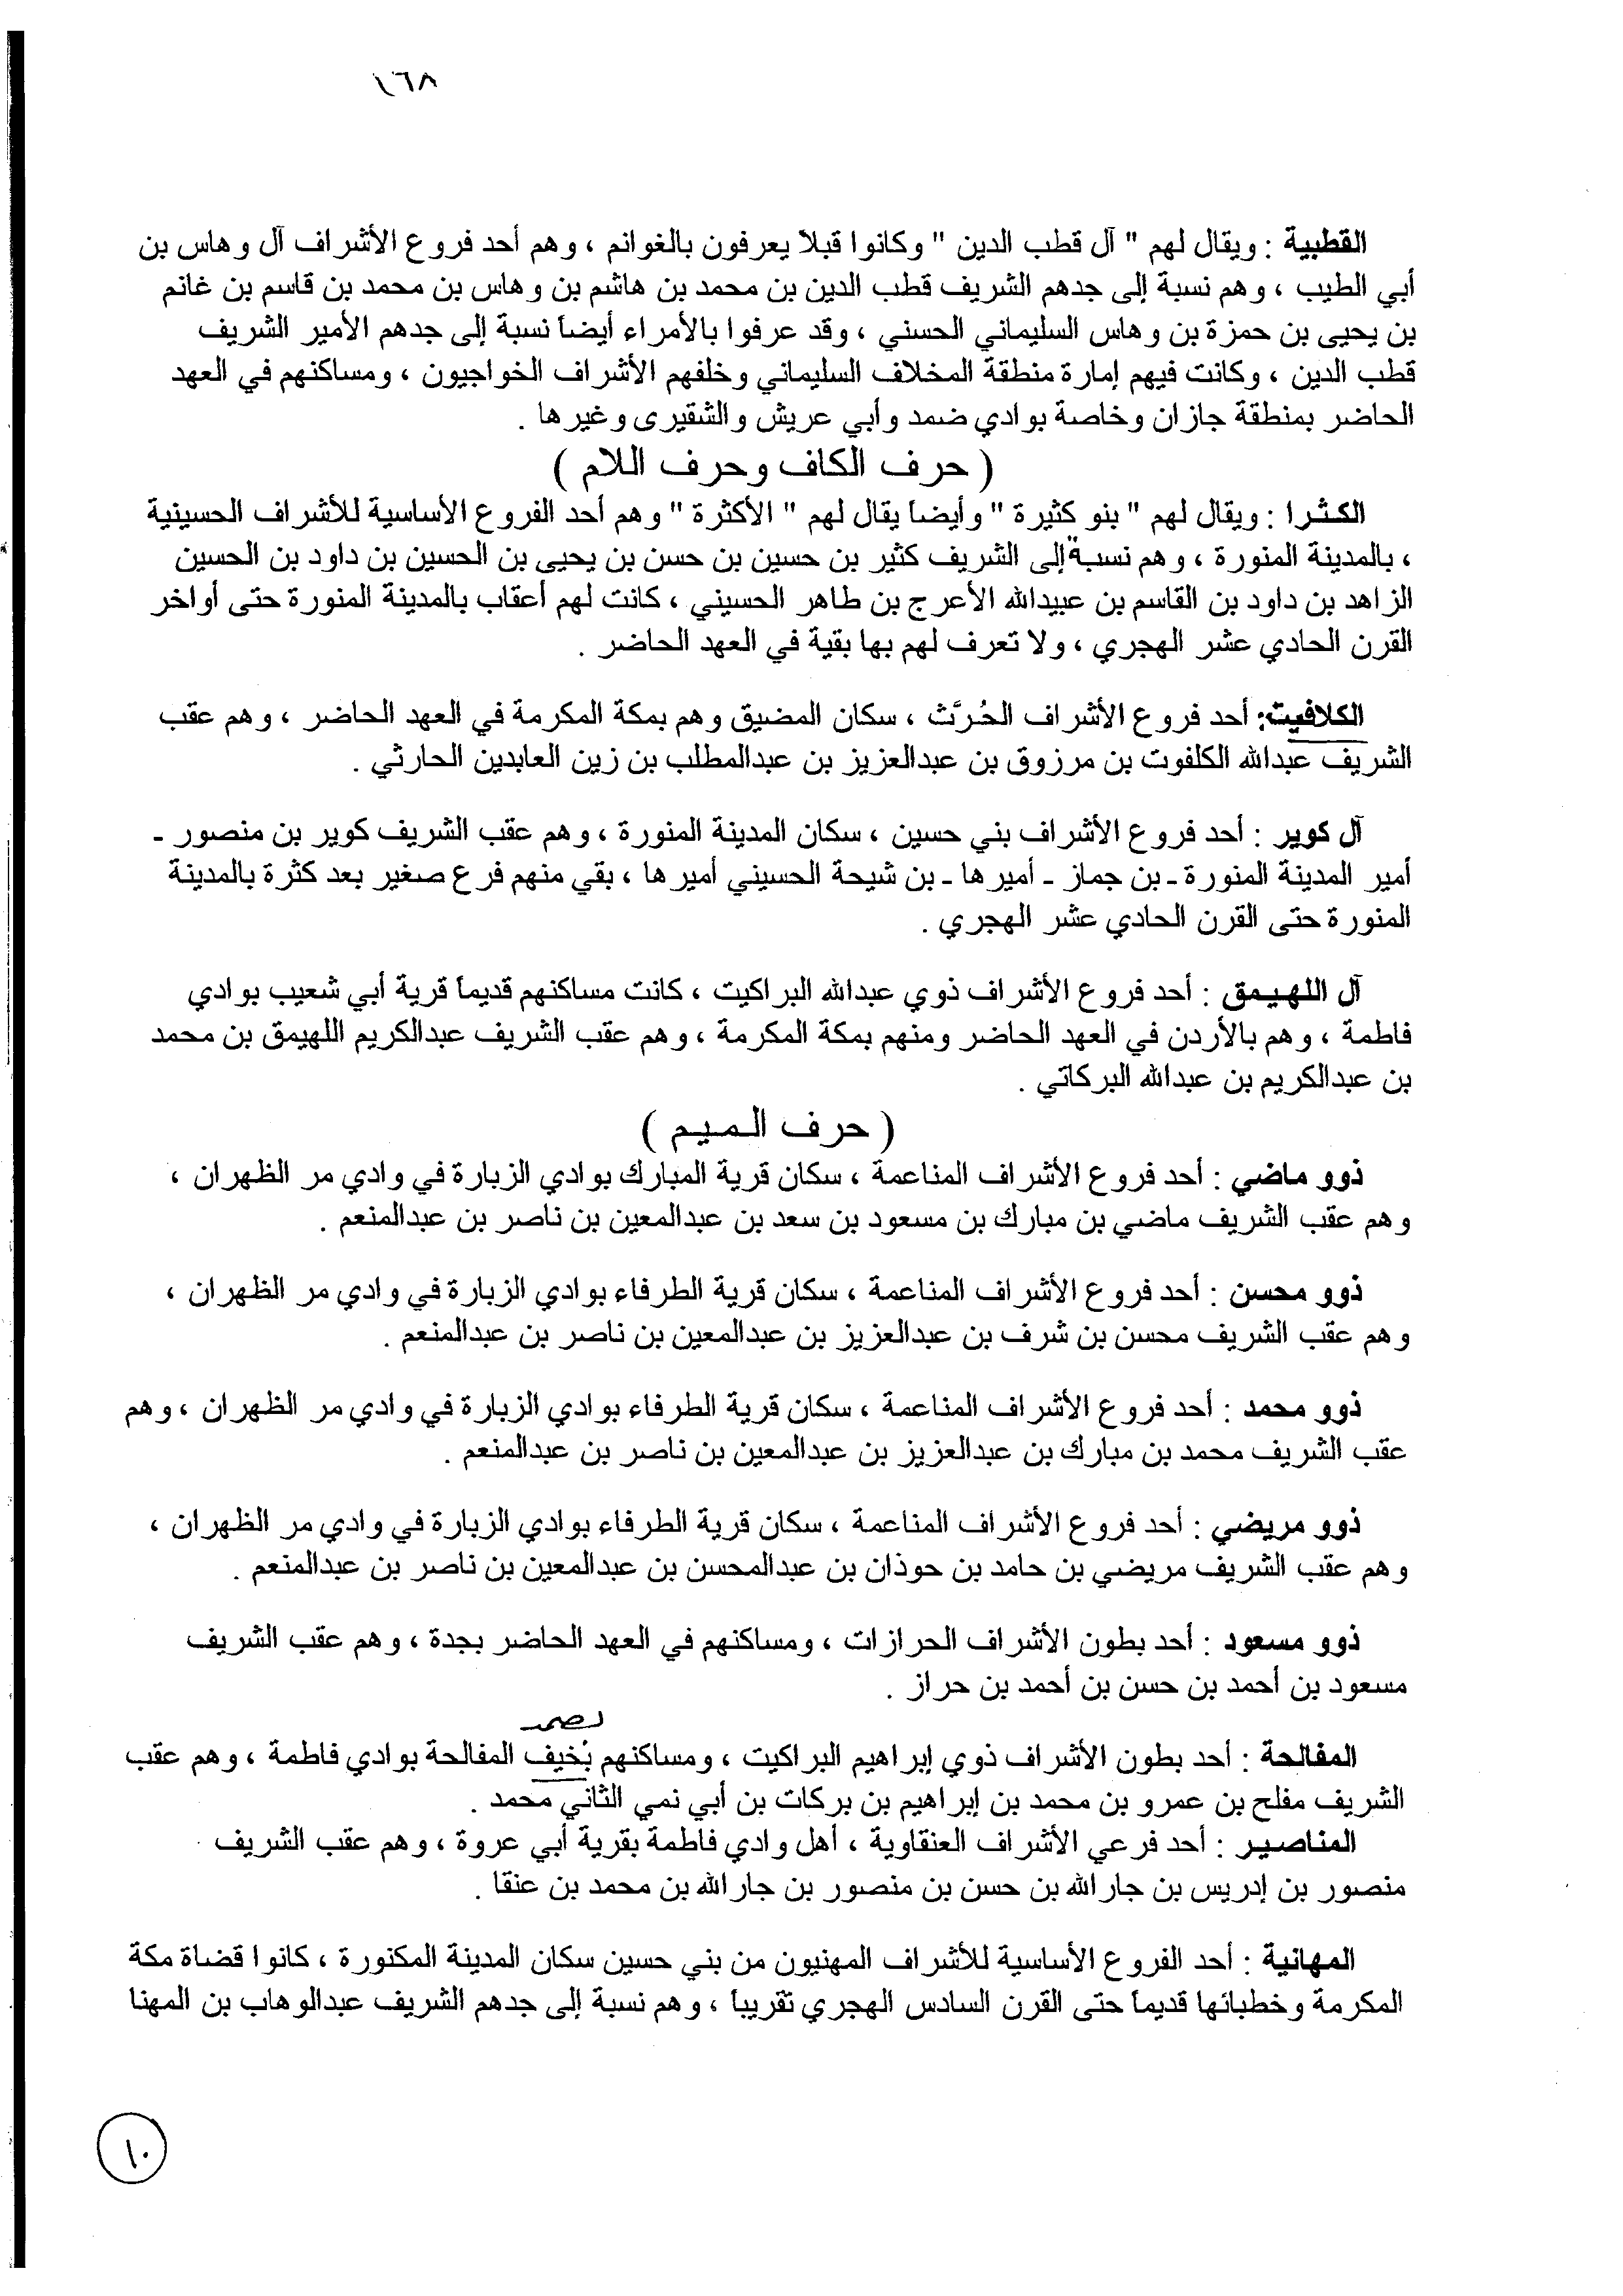 ١٦٨
القطبية : ويقال لهم " آل قطب الدين " وكانوا قبلا يعرفون بالغوانم ، وهم أحد فروع الأشراف آل وهاس بن
أبي الطيب ، وهم نسبة إلى جدهم الشريف قطب الدين بن محمد بن هاشم بن وهاس بن محمد بن قاسم بن غانم
بن يحيى بن حمزة بن وهاس السليماني الحسني ، وقد عرفوا بالأمراء أيضاً نسبة إلى جدهم الأمير الشريف
قطب الدين ، وكانت فيهم إمارة منطقة المخلاف السليماني وخلفهم الأشراف الخواجيون ، ومساكنهم في العهد
الحاضر بمنطقة جازان وخاصة بوادي ضمد وأبي عريش والشقيرى وغيرها .
( حرف الكاف وحرف اللام )
الكثرا : ويقال لهم " بنو كثيرة " وأيضاً يقال لهم " الأكثرة " وهم أحد الفروع الأساسية للأشراف الحسينية
، بالمدينة المنورة ، وهم نسبة إلى الشريف كثير بن حسين بن حسن بن يحيى بن الحسين بن داود بن الحسين
الزاهد بن داود بن القاسم بن عبيدالله الأعرج بن طاهر الحسيني ، كانت لهم أعقاب بالمدينة المنورة حتى أواخر
القرن الحادي عشر الهجري ، ولا تعرف لهم بها بقية في العهد الحاضر .
الكلافيت: أحد فروع الأشراف الحُرَّث ، سكان المضيق وهم بمكة المكرمة في العهد الحاضر ، وهم عقب
الشريف عبدالله الكلفوت بن مرزوق بن عبدالعزيز بن عبدالمطلب بن زين العابدين الحارثي .
آل كوير : أحد فروع الأشراف بني حسين ، سكان المدينة المنورة ، وهم عقب الشريف كوير بن منصور ـ
أمير المدينة المنورة ـ بن جماز ـ أميرها ـ بن شيحة الحسيني أميرها ، بقي منهم فرع صغير بعد كثرة بالمدينة
المنورة حتى القرن الحادي عشر الهجري .
آل اللهيمق : أحد فروع الأشراف ذوي عبدالله البراكيت ، كانت مساكنهم قديماً قرية أبي شعيب بوادي
فاطمة ، وهم بالأردن في العهد الحاضر ومنهم بمكة المكرمة ، وهم عقب الشريف عبدالكريم اللهيمق بن محمد
بن عبدالكريم بن عبدالله البركاتي .
( حرف الميم )
ذوو ماضي : أحد فروع الأشراف المناعمة ، سكان قرية المبارك بوادي الزبارة في وادي مر الظهران ،
وهم عقب الشريف ماضي بن مبارك بن مسعود بن سعد بن عبدالمعين بن ناصر بن عبدالمنعم .
ذوو محسن : أحد فروع الأشراف المناعمة ، سكان قرية الطرفاء بوادي الزبارة في وادي مر الظهران ،
وهم عقب الشريف محسن بن شرف بن عبدالعزيز بن عبدالمعين بن ناصر بن عبدالمنعم .
ذوو محمد : أحد فروع الأشراف المناعمة ، سكان قرية الطرفاء بوادي الزبارة في وادي مر الظهران ، وهم
عقب الشريف محمد بن مبارك بن عبدالعزيز بن عبدالمعين بن ناصر بن عبدالمنعم .
ذوو مريضي : أحد فروع الأشراف المناعمة ، سكان قرية الطرفاء بوادي الزبارة في وادي مر الظهران ،
وهم عقب الشريف مريضي بن حامد بن حوذان بن عبدالمحسن بن عبدالمعين بن ناصر بن عبدالمنعم .
ذوو مسعود : أحد بطون الأشراف الحرازات ، ومساكنهم في العهد الحاضر بجدة ، وهم عقب الشريف
مسعود بن أحمد بن حسن بن أحمد بن حراز .
المفالحة : أحد بطون الأشراف ذوي إبراهيم البراكيت ، ومساكنهم بُخيف المفالحة بوادي فاطمة ، وهم عقب
الشريف مفلح بن عمرو بن محمد بن إبراهيم بن بركات بن أبي نمي الثاني محمد .
المناصير : أحد فرعي الأشراف العنقاوية ، أهل وادي فاطمة بقرية أبي عروة ، وهم عقب الشريف
منصور بن إدريس بن جارالله بن حسن بن منصور بن جارالله بن محمد بن عنقا .
المهانية : أحد الفروع الأساسية للأشراف المهنيون من بني حسين سكان المدينة المكنورة ، كانوا قضاة مكة
المكرمة وخطبائها قديماً حتى القرن السادس الهجري تقريباً ، وهم نسبة إلى جدهم الشريف عبدالوهاب بن المهنا
١٠